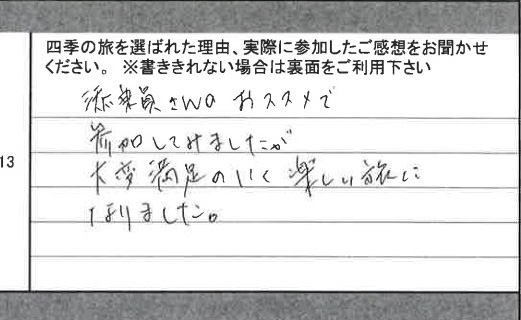 四季の旅を選ばれた理由、実際に参加したご感想をお聞かせ
ください。 ※書ききれない場合は裏面をご利用下さい
添乗員さんの おススメで
13
参加してみましたが
大変満足のいく楽しい旅に
なりました。